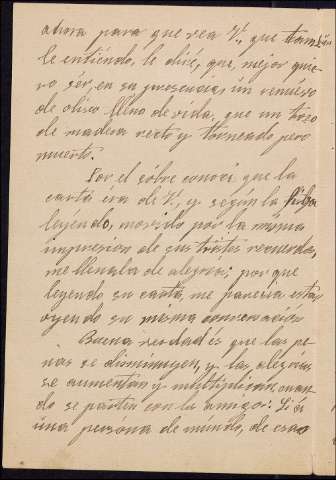 ahora para que vea V., que tambien
le entiendo, le diré, que, mejor quie-
ro sér, en su presencia, un
de olivo lleno de vida, que un trozo
de madera recto y torneado pero
muerto.
Por el sóbre conocí que la
carta era de V., y según la
leyendo, movido por la misma
impresion de sus tristes recuerdos,
me llenaba de alegria; por que
leyendo su carta, me parecia estar
oyendo su misma conversacion
Buena verdad és que las pe-
nas se disminuyen, y las alegrias
se aumentan y multiplican, cuan-
do se parten con los amigos: Si á
una persona de mundo, de esas